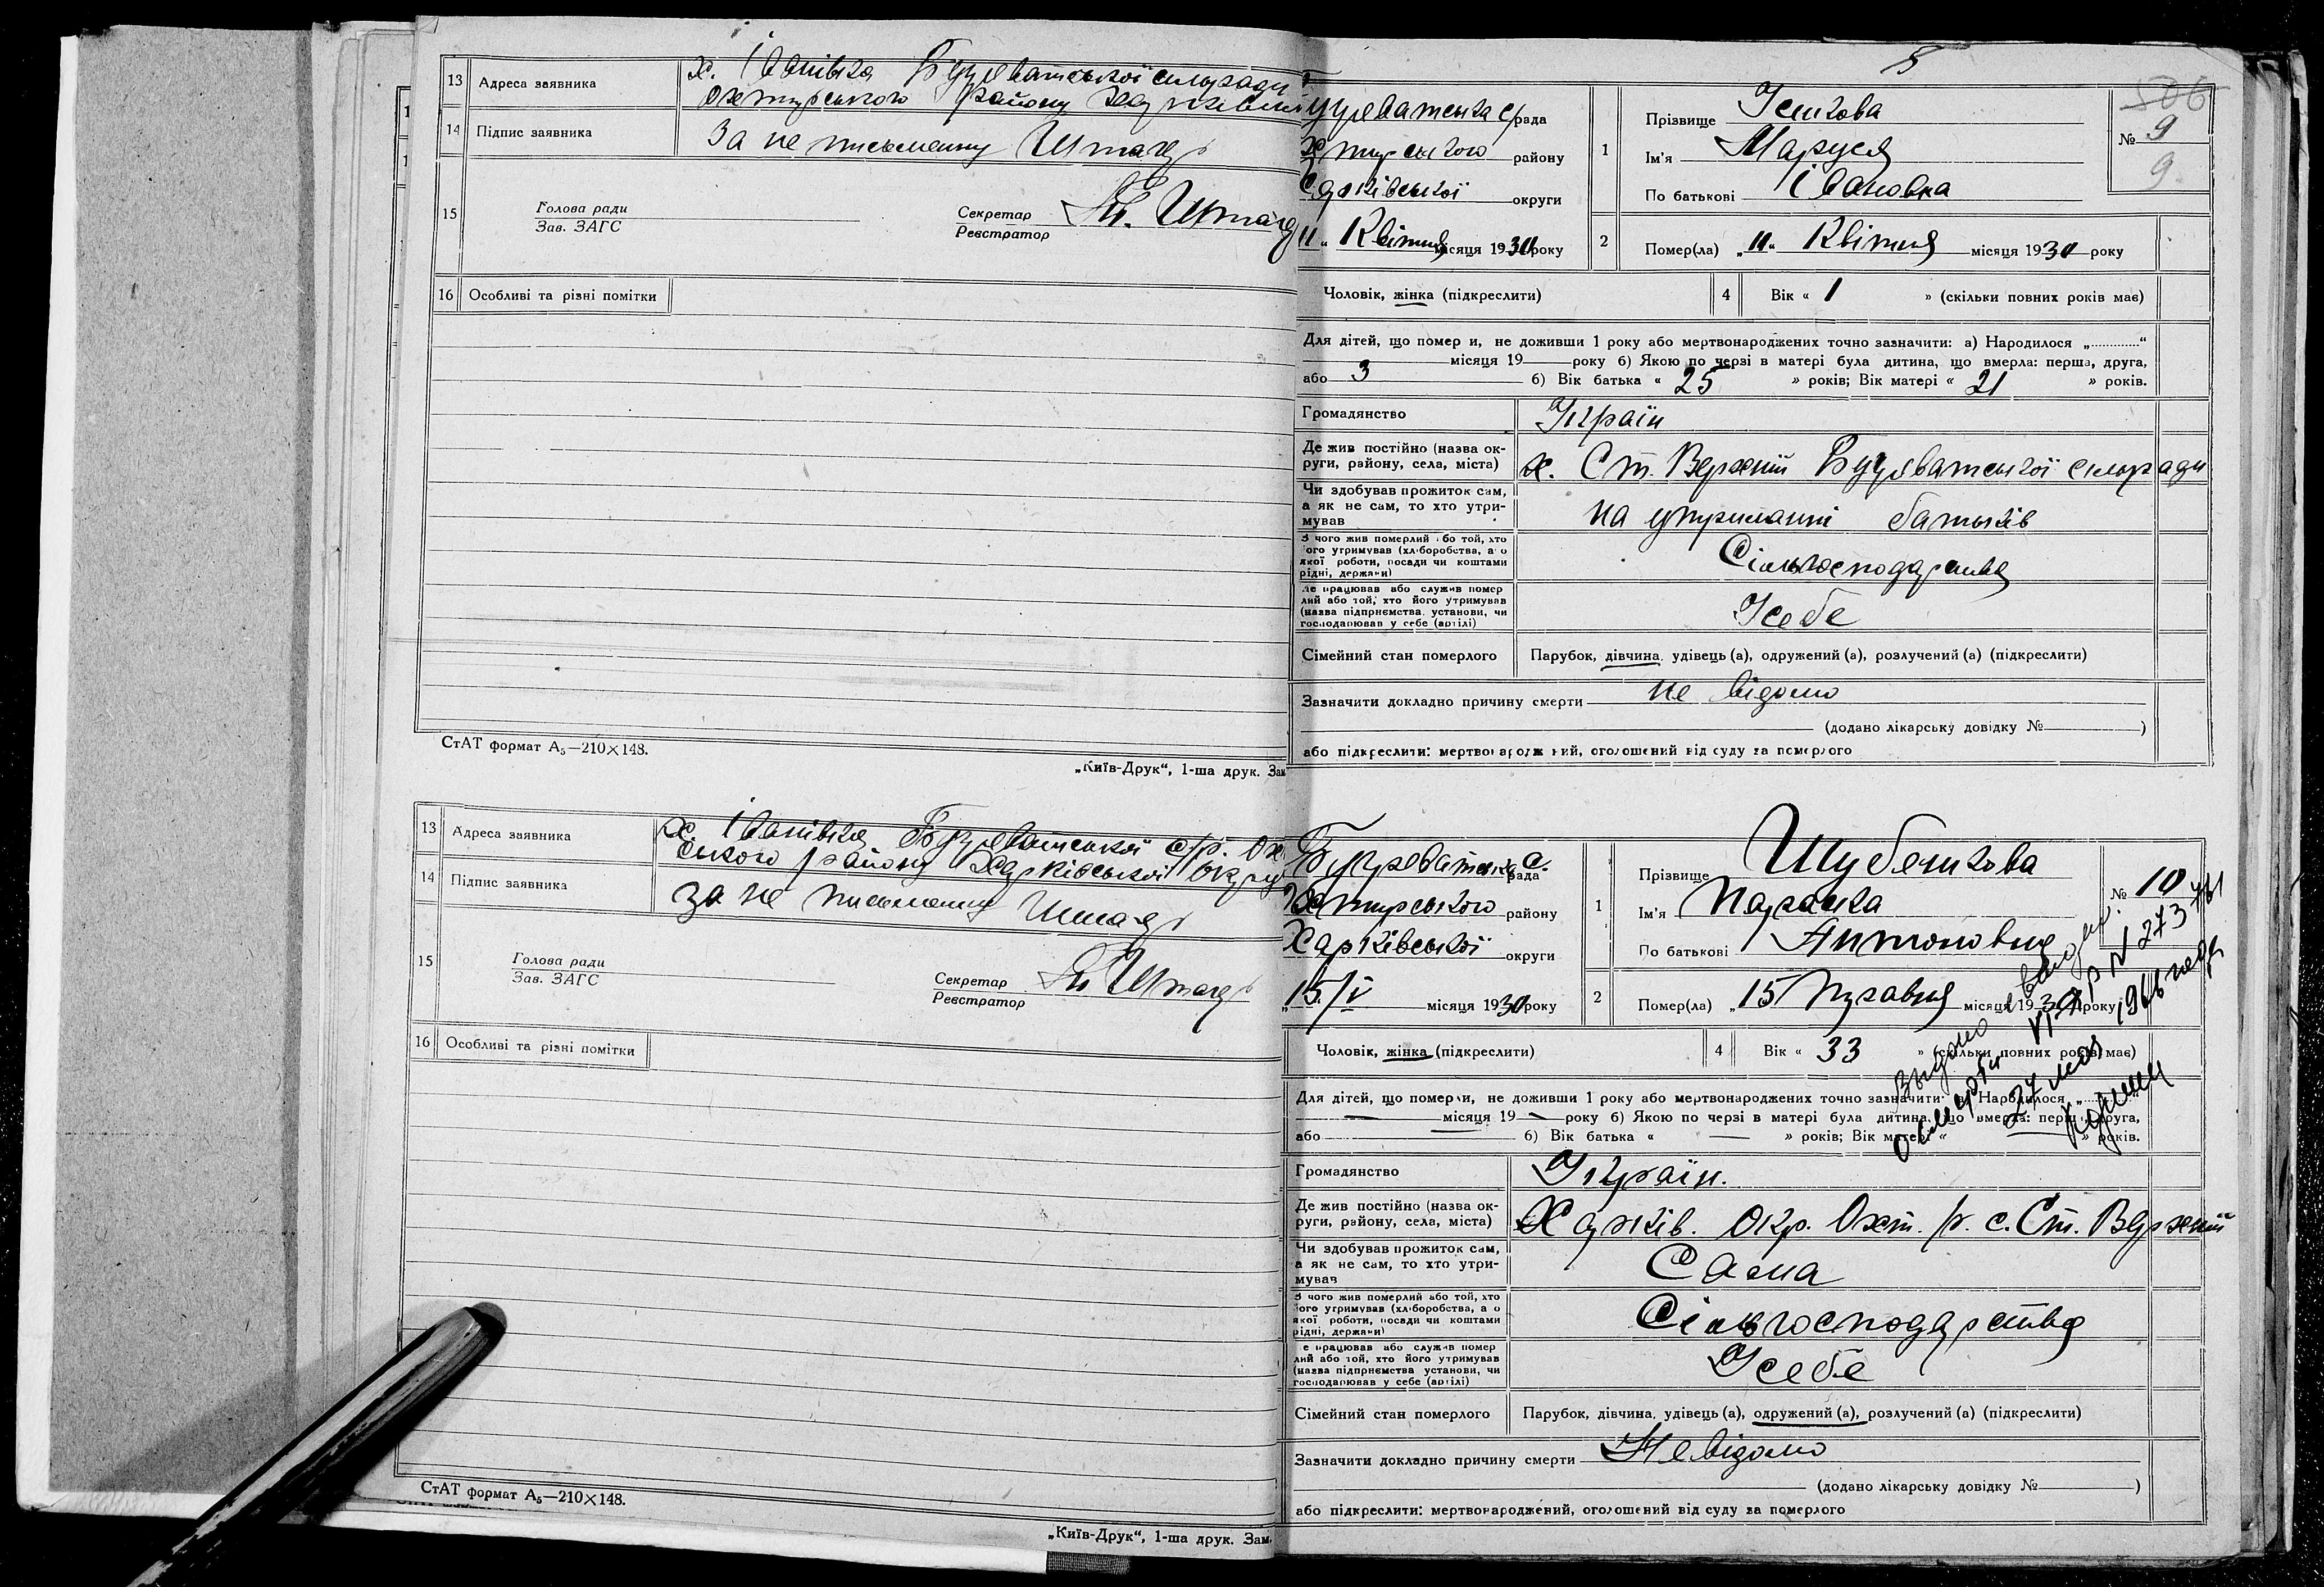 13 Адреса заявника х. Іванівка Бугреватської сільради
Охтирського району Харківськ
14 Підпис заявника За не письменну Штагер
15 Голова ради
Зав. ЗАГС
Секретар
Реєстратор
16 Особливі та різні помітки
СтАТ формат А₅—210×148.
„Київ-Друк“, 1-ша друк. Зам
13 Адреса заявника х. Іванівка Бугреватської с/р. Ох
ського району Харківської Округ
14 Підпис заявника за не письменну
15 Голова ради
Зав. ЗАГС
Секретар
Реєстратор
16 Особливі та різні помітки
СтАТ формат А₅—210×148.
„Київ-Друк“, 1-ша друк. Зам.
5
506
угреватська с/рада
хтирського району
округи
11 „ Квітня місяця 1930 року
1 Прізвище
Ім'я Маруся
По батькові Івановна
№ 9
9
2 Помер(ла) „11“ Квітня місяця 1930 року
Чоловік, жінка (підкреслити)
4 Вік « 1 » (скільки повних років має)
Для дітей, що помер и, не доживши 1 року або мертвонароджених точно зазначити: а) Народилося „............“
місяця 19 року б) Якою по черзі в матері була дитина, що вмерла: перша, друга,
або 3 б) Вік батька « 25 » років; Вік матері « 21 » років.
Громадянство Україн
Де жив постійно (назва ок-
руги, району, села, міста) х. Ст. Верхній Бугреватської сільради
Чи здобував прожиток сам,
а як не сам, то хто утри-
мував на утриманні батьків
З чого жив померлий або той, хто
ого утримував (хліборобства, а о
якої роботи, посади чи коштами
рідні, держави) Сільгосподарства
е працював або служив помер
лий або той, хто його утримував
(назва підприємства, установи, чи
господарював у себе (артілі) У себе
Сімейний стан померлого Парубок, дівчина, удівець (а), одружений (а), розлучений (а) (підкреслити)
Зазначити докладно причину смерти не відомо
(додано лікарську довідку № )
або підкреслити: мертвонароджений, оголошений від суду за померлого
Бугреватська с.
рада
Охтирського району
Харківської округи
„15/V місяця 1930 року
1 Прізвище
Ім'я Параска
По батькові Антоновна
№ 10
2 Помер(ла) „15 Травня місяця 1930 року
Чоловік, жінка (підкреслити)
4 Вік « 33 » (скільки повних років має)
Для дітей, що померли, не доживши 1 року або мертвонароджених точно зазначити: а) Народилося „
місяця 19 року б) Якою по черзі в матері була дитина, що вмерла: перша, друга,
або б) Вік батька « — » років; Вік матері « — » років.
Громадянство Україн.
Де жив постійно (назва ок-
руги, району, села, міста) Харків. Окр. Охт. р. с. Ст. Верхній
Чи здобував прожиток сам,
а як не сам, то хто утри-
мував Сама
З чого жив померлий або той, хто
ого утримував (хліборобства, а о
якої роботи, посади чи коштами
рідні, держави) Сільгосподарства
е працював або служив помер
лий або той, хто його утримував
(назва підприємства установи, чи
господарював у себе (артілі) У себе
Сімейний стан померлого Парубок, дівчина, удівець (а), одружений (а), розлучений (а) (підкреслити)
Зазначити докладно причину смерти Невідомо
(додано лікарську довідку № )
або підкреслити: мертвонароджений, оголошений від суду за померлого
о смерти
27 мая 1966